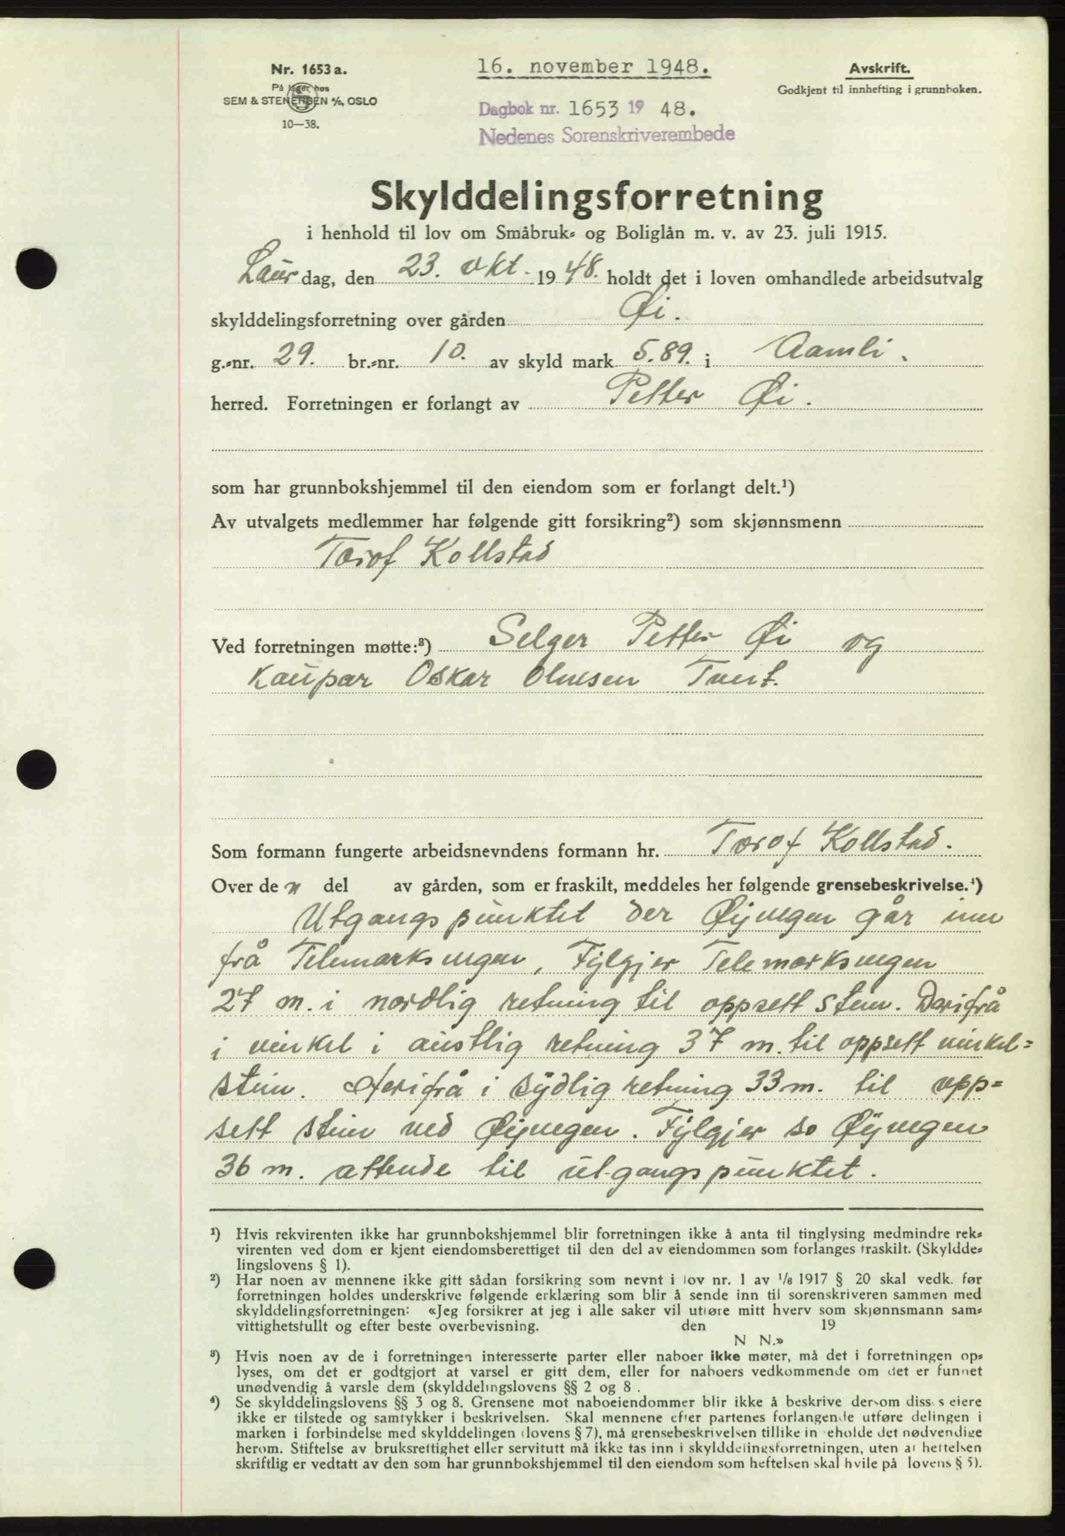 Nr. 1653 a.
På lager hos
SEM & STENERSEN A/S, OSLO
10—38.
16. november 1948.
Dagbok nr. 1653 19 48.
Nedenes Sorenskriverembede
Avskrift.
Godkjent til innhefting i grunnboken.
Skylddelingsforretning
i henhold til lov om Småbruk- og Boliglån m. v. av 23. juli 1915.
Laur dag, den 23. okt. 1948. holdt det i loven omhandlede arbeidsutvalg
skylddelingsforretning over gården Øi.
g.-nr. 29. br.-nr. 10. av skyld mark 5.89. i Aamli.
herred. Forretningen er forlangt av Petter Øi.
som har grunnbokshjemmel til den eiendom som er forlangt delt.¹)
Av utvalgets medlemmer har følgende gitt forsikring²) som skjønnsmenn
Torof Kollstad
Ved forretningen møtte:³) Selger Petter Øi og
Kaupar Oskar Olnesen Tveit.
Som formann fungerte arbeidsnevndens formann hr. Torof Kollstad.
Over den del av gården, som er fraskilt, meddeles her følgende grensebeskrivelse.⁴)
Utgangspunktet der Øyvegen går inn
frå Telemarksvegen, Fylgjer Telemarksvegen
27 m. i nordlig retning til oppsett stein. Derifrå
i vinkel i austlig retning 37 m. til oppsett vinkel=
stein. Derifrå i sydlig retning 33 m. til opp=
sett stein ved Øyvegen. Fylgjer so Øyvegen
36 m. attende til utgangspunktet.
¹) Hvis rekvirenten ikke har grunnbokshjemmel blir forretningen ikke å anta til tinglysing medmindre rek-
virenten ved dom er kjent eiendomsberettiget til den del av eiendommen som forlanges fraskilt. (Skyldde-
lingslovens § 1).
²) Har noen av mennene ikke gitt sådan forsikring som nevnt i lov nr. 1 av 1/6 1917 § 20 skal vedk. før
forretningen holdes underskrive følgende erklæring som blir å sende inn til sorenskriveren sammen med
skylddelingsforretningen: «Jeg forsikrer at jeg i alle saker vil utføre mitt hverv som skjønnsmann sam-
vittighetsfullt og efter beste overbevisning. den 19
N N.»
³) Hvis noen av de i forretningen interesserte parter eller naboer ikke møter, må det i forretningen op-
lyses, om det er godtgjort at varsel er gitt dem, eller for naboers vedkommende om det er funnet
unødvendig å varsle dem (skylddelingslovens §§ 2 og 8.
⁴) Se skylddelingslovens §§ 3 og 8. Grensene mot naboeiendommer blir ikke å beskrive dersom disses eiere
ikke er tilstede og samtykker i beskrivelsen. Skal mennene efter partenes forlangende utføre delingen i
marken i forbindelse med skylddelingen (lovens § 7), må grensebeskrivelsen tillike inneholde det nødvendige
herom. Stiftelse av bruksrettighet eller servitutt må ikke tas inn i skylddelingsforretningen, uten at heftelsen
skriftlig er vedtatt av den som har grunnbokshjemmel til den eiendom som heftelsen skal hvile på lovens § 5).